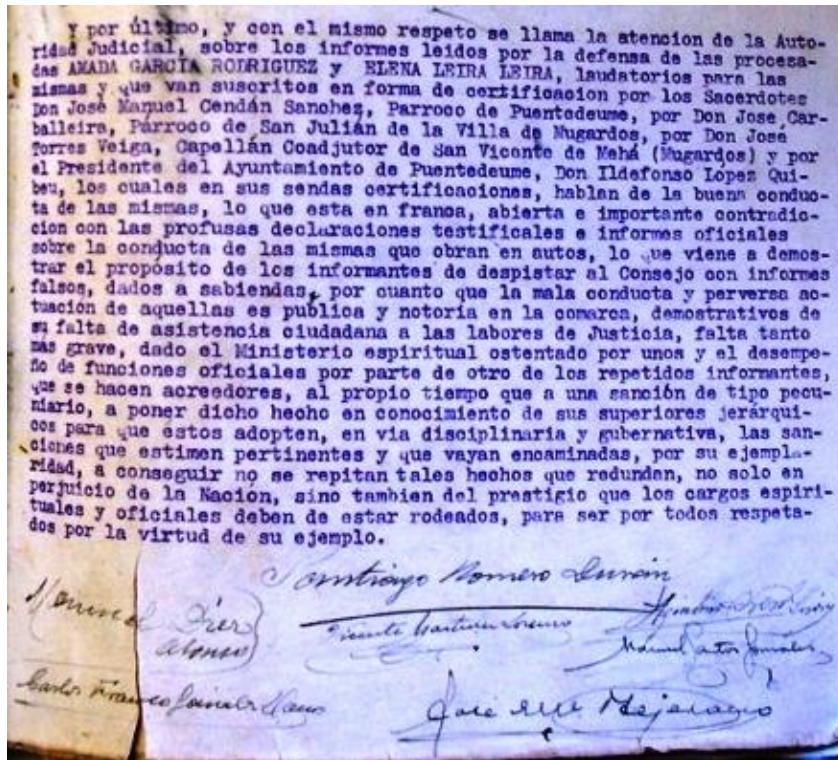 Y por último, y con el mismo respeto se llama la atencion de la Auto-
ridad Judicial, sobre los informes leidos por la defensa de las procesa-
das AMADA GARCIA RODRIGUEZ y ELENA LEIRA LEIRA, laudatorios para las
mismas y que van suscritos en forma de certificacion por los Sacerdotes
Don José Manuel Cendán Sanchez, Parroco de Puentedeume, por Don Jose Car-
balleira, Párroco de San Julián de la Villa de Mugardos, por Don José
Torres Veiga, Capellán Coadjutor de San Vicente de Mehá (Mugardos) y por
el Presidente del Ayuntamiento de Puentedeume, Don Ildefonso López Qui-
beu, los cuales en sus sendas certificaciones, hablan de la buena conduc-
ta de las mismas, lo que esta en franca, abierta e importante contradic-
cion con las profusas declaraciones testificales e informes oficiales
sobre la conducta de las mismas que obran en autos, lo que viene a demos-
trar el propósito de los informantes de despistar al Consejo con informes
falsos, dados a sabiendas, por cuanto que la mala conducta y perversa ac-
tuación de aquellas es publica y notoria en la comarca, demostrativos de
su falta de asistencia ciudadana a las labores de Justicia, falta tanto
mas grave, dado el Ministerio espiritual ostentado por unos y el desempe-
ño de funciones oficiales por parte de otro de los repetidos informantes,
que se hacen acreedores, al propio tiempo que a una sanción de tipo pecu-
niario, a poner dicho hecho en conocimiento de sus superiores jerárqui-
cos para que estos adopten, en via disciplinaria y gubernativa, las san-
ciones que estimen pertinentes y que vayan encaminadas, por su ejempla-
ridad, a conseguir no se repitan tales hechos que redundan, no solo en
perjuicio de la Nación, sino tambien del prestigio que los cargos espiri-
tuales y oficiales deben de estar rodeados, para ser por todos respeta-
dos por la virtud de su ejemplo.
Santiago Romero Durán
Manuel Díez
Alonso
Vicente Martinez
Manuel Pastor González
Carlos Franco González Llanos
José Mª